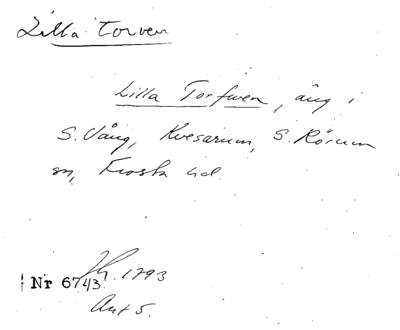 Lilla torven
Lilla Torfwen, äng i
S. Vång, Kvesarum, S. Rörum
sn, Frosta hd.
Nr 6743. 1793
Akt 5.